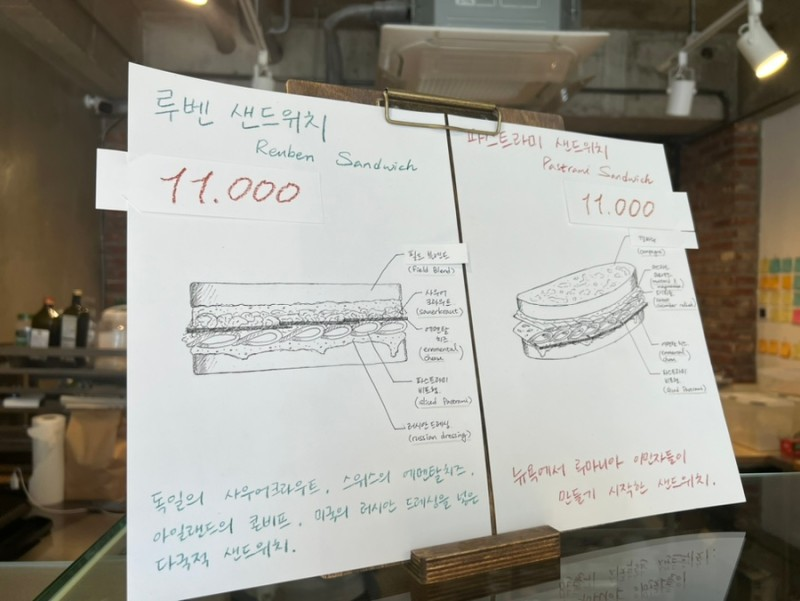 루벤 샌드위치
Reuben Sandwich
11.000
필드 블렌드
(field Blend)
사우어
크라우트
(sauerkraut)
에멘탈
치즈
(emmental
cheese)
파스트라미
비프햄
(sliced Pastrami)
러시안 드레싱
(russian dressing)
독일의 사우어크라우트, 스위스의 에멘탈치즈,
아일랜드의 콘비프, 미국의 러시안 드레싱을 넣은
다국적 샌드위치.
파스트라미 샌드위치
Pastrami Sandwich
11.000
(campagne)
에멘탈 치즈
(emmental
cheese)
파스트라미
비프햄
(sliced Pastrami)
뉴욕에서 루마니아 이민자들이
만들기 시작한 샌드위치.